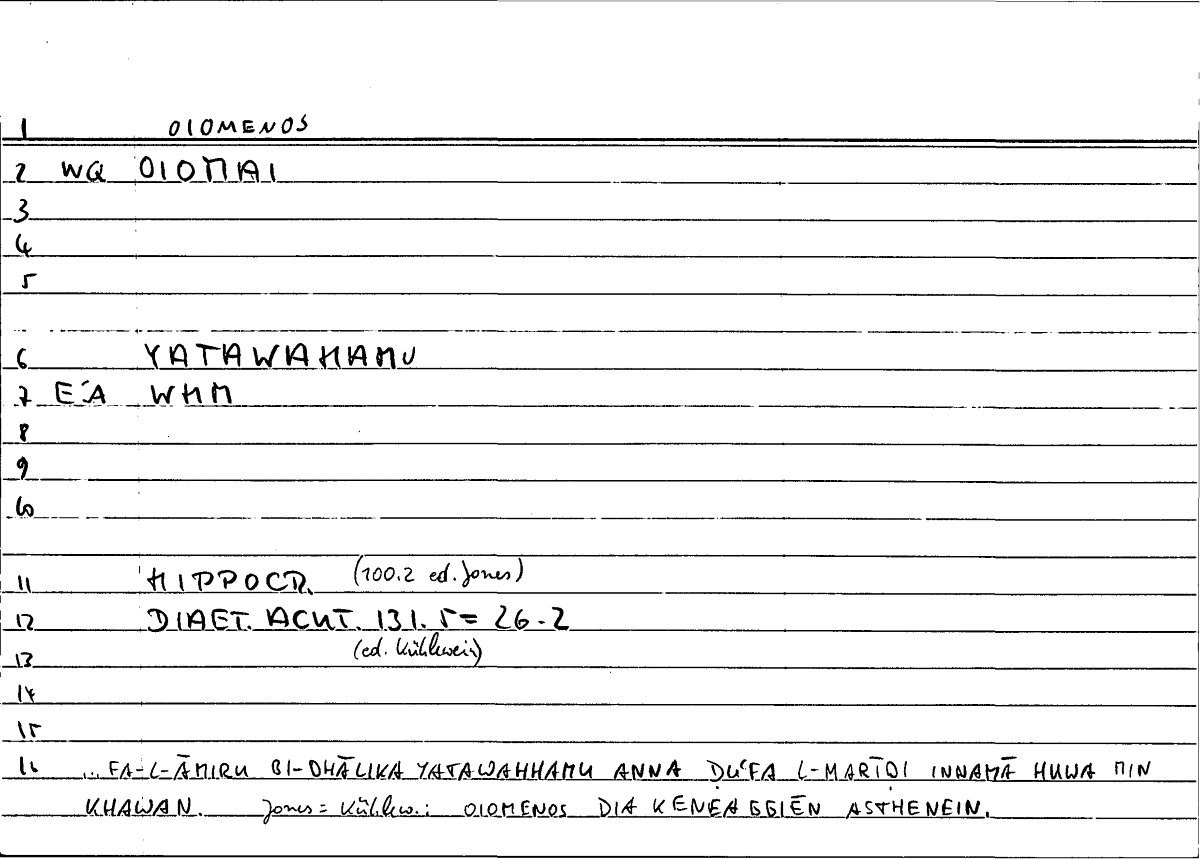 1 OIOMENOS
2 WQ OIOMAI
3
4
5
6 YATAWAHAMU
7 E´A WHM
8
9
10
11 HIPPOCR. (100.2 ed. Jones)
12 DIAET. ACUT. 131.5 = 26.2
13 (ed. Kühlewein)
14
15
16 ... FA-L-ĀMIRU BI-DHĀLIKA YATAWAHHAMU ANNA ḌU´FA L-MARĪḌI INNAMĀ HUWA MIN
KHAWAN. Jones = Kühlew.: OIOMENOS DIA KENEAGGIĒN ASTHENEIN.